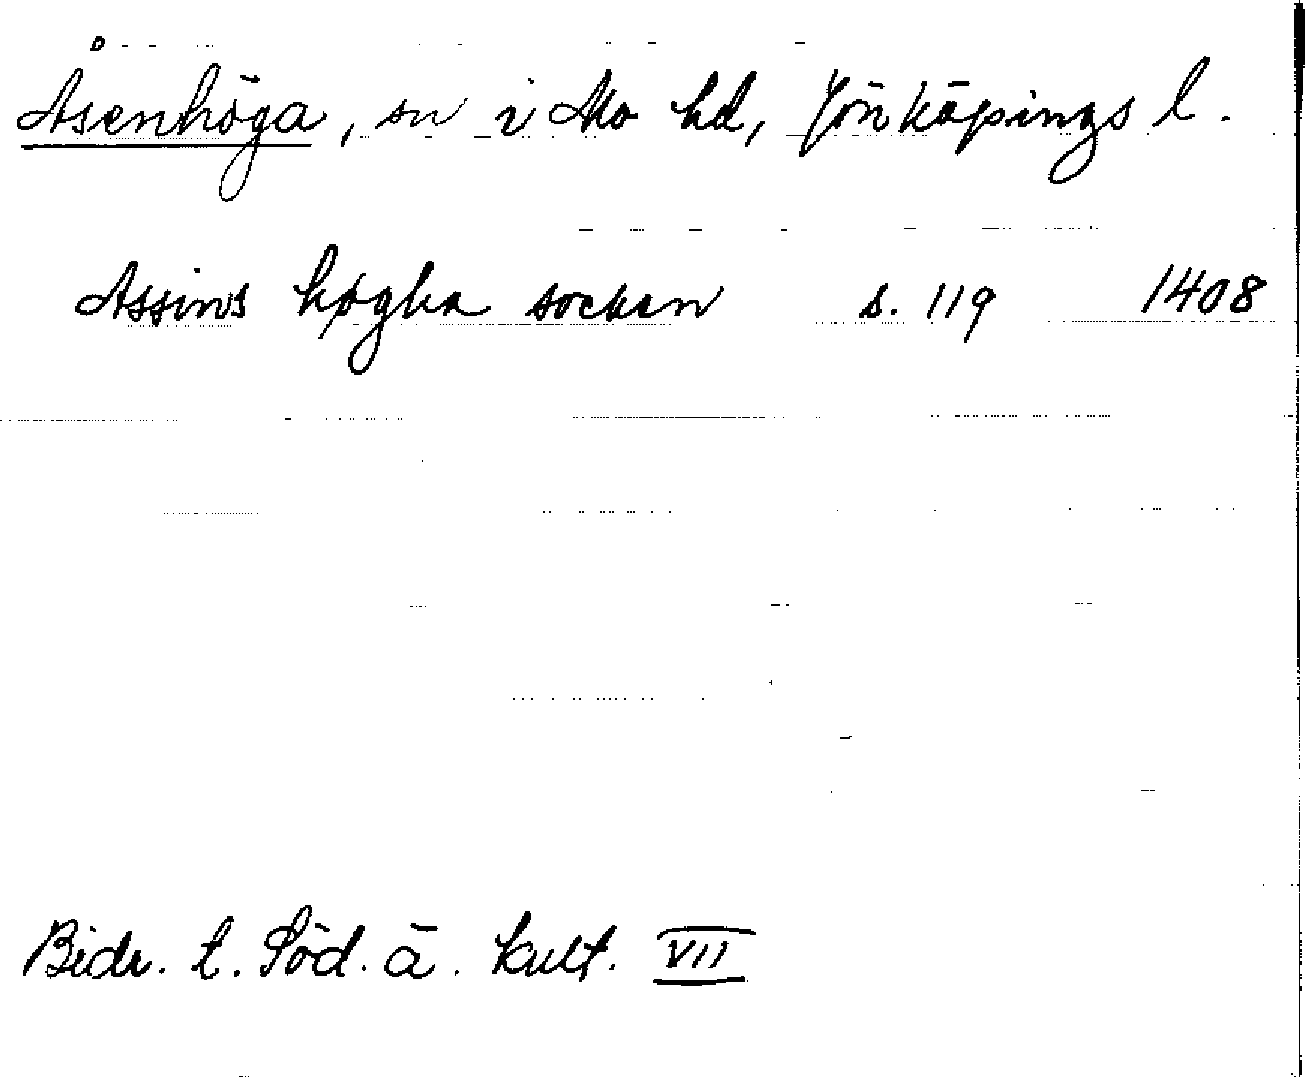 Åsenhöga, sn i Mo hd, Jönköpings l.
Assins høgha socken s. 119 1408
Bidr. t. Söd. ä. kult. VII